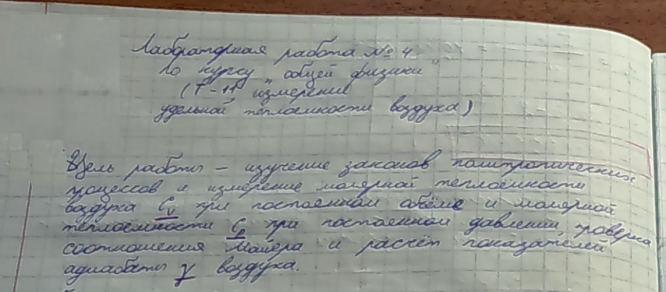 Лабораторная работа № 4
по курсу "общей физики"
измерение
удельной теплоемкости воздуха)
Цель работы – изучение законов политропических
процессов и измерение молярной теплоемкости
воздуха Cv при постоянном объёме и молярной
теплоёмкости Cp при постоянном давлении, проверка
соотношения Майера и расчёт показателей
адиабаты γ воздуха.